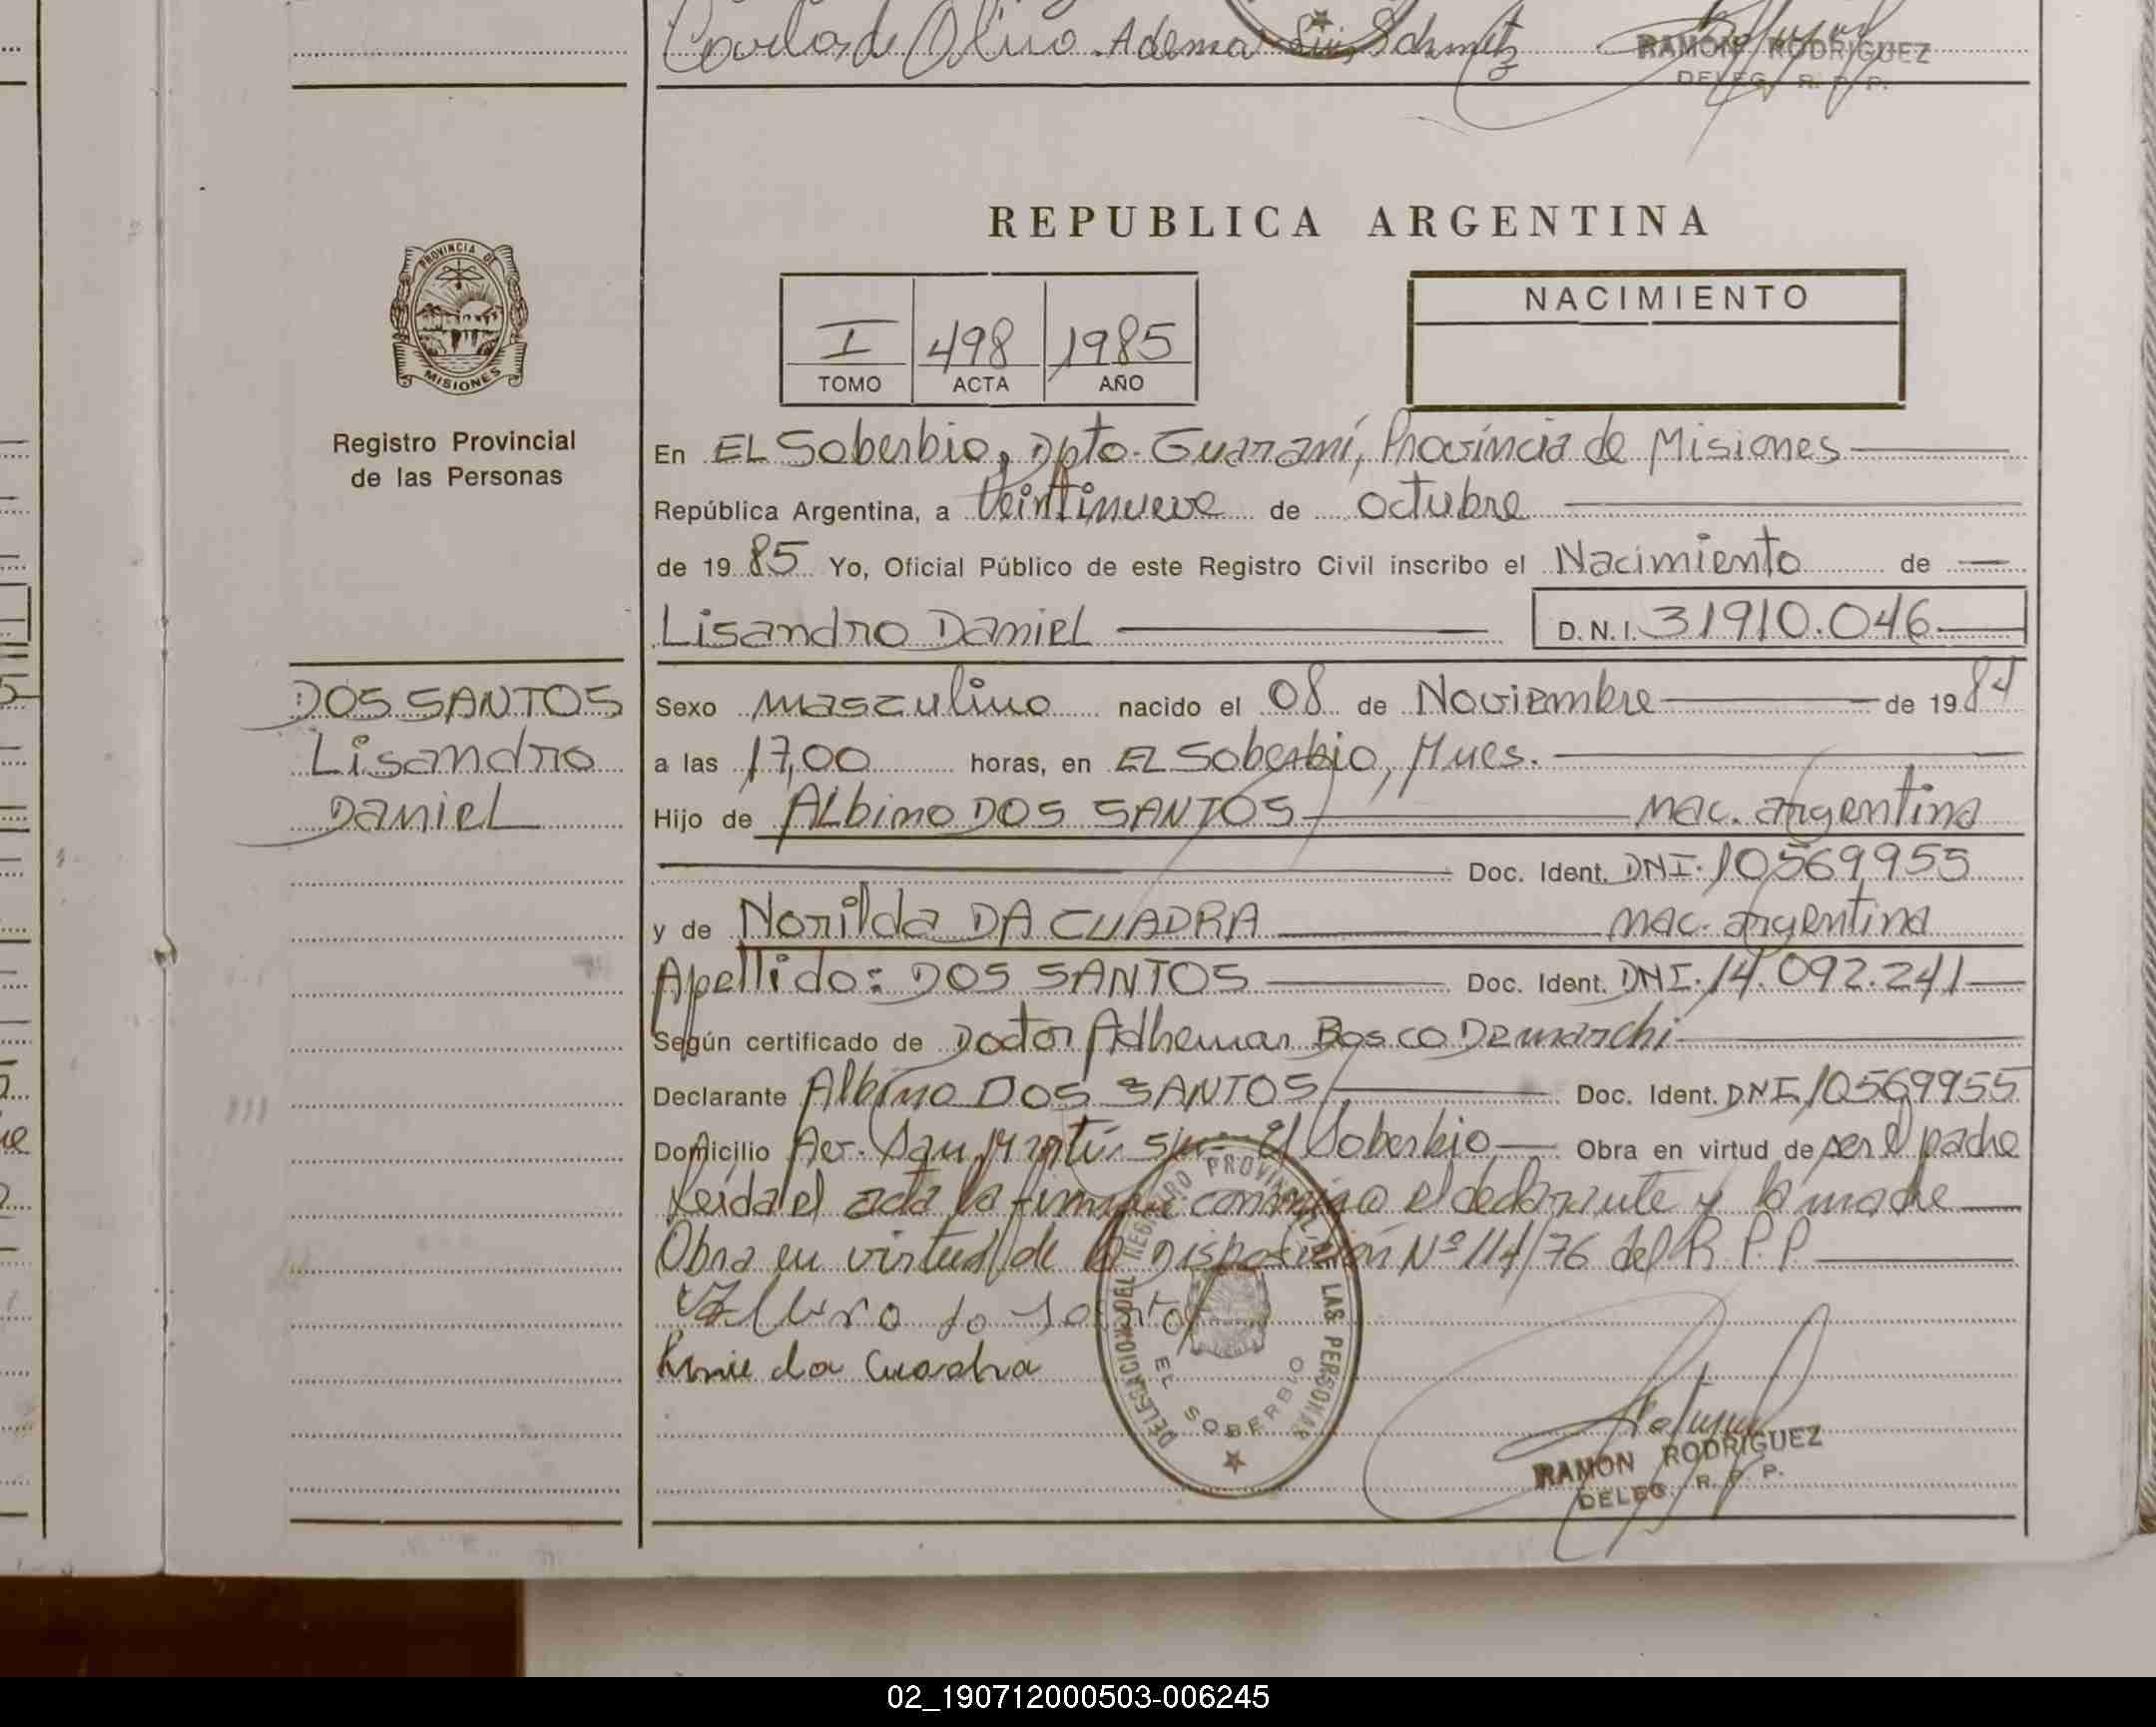 Carlos de Olivo Adema Luis Schmitz
RAMON RODRIGUEZ
DELEG. R. P. P.
REPUBLICA ARGENTINA
PROVINCIA DE
MISIONES
NACIMIENTO
I 498 1985
TOMO ACTA AÑO
Registro Provincial
de las Personas
En EL Soberbio, Dpto. Guaraní, Provincia de Misiones
República Argentina, a veintinueve de octubre
de 19 85 Yo, Oficial Público de este Registro Civil inscribo el Nacimiento de
Lisandro Daniel D.N.I. 31910.046
DOS SANTOS
Lisandro
Daniel
Sexo masculino nacido el 08 de Noviembre de 19 84
a las 17,00 horas, en EL Soberbio, Mnes.
Hijo de Albino DOS SANTOS nac. argentina
Doc. Ident. DNI. 10569955
y de Norilda DA CUADRA nac. argentina
Apellido: DOS SANTOS Doc. Ident. DNI. 14.092.241
Según certificado de Doctor Adhemar Bosco Demarchi
Declarante Albino DOS SANTOS Doc. Ident. DNI 10569955
Domicilio Av. San Martín s/n El Soberbio Obra en virtud de ser el padre
Leída el acta la firman conmigo el declarante y la madre
Obra en virtud de la Disposición Nº 114/76 del R.P.P.
DELEGACION DEL REGISTRO PROVINCIAL DE LAS PERSONAS
EL SOBERBIO
da Cuadra
RAMON RODRIGUEZ
DELEG. R. P. P.
02_190712000503-006245